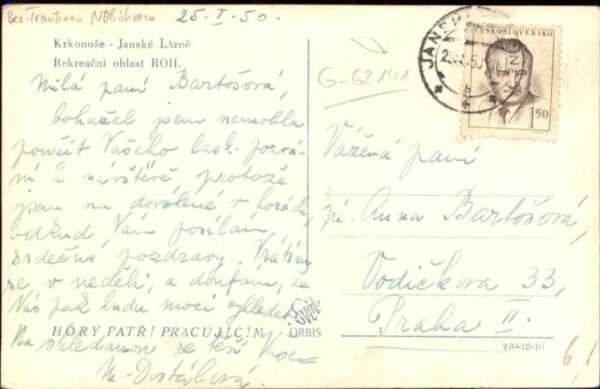 Bez. Trautenau NDBöhmen 25. I. 50.
Krkonoše - Janské Lázně
Rekreační oblast ROH.
Milá paní Bartošová,
bohužel jsem nemohla
použít Vašeho lask. pozvá-
ní k návštěvě, protože
jsem na dovolené v horách,
odkud Vám posílám
srdečné pozdravy. Vrátím
se v neděli, a doufám, že
Vás pak budu moci vyhledat.
HORY PATŘÍ PRACUJÍCÍM
ORBIS
Na shledanou se těší
M. Dostálová.
G-62141
ČESKOSLOVENSKO
1.50
JANSK
Vážená paní
pí. Anna Bartošová,
Vodičkova 33,
Praha II.
6,